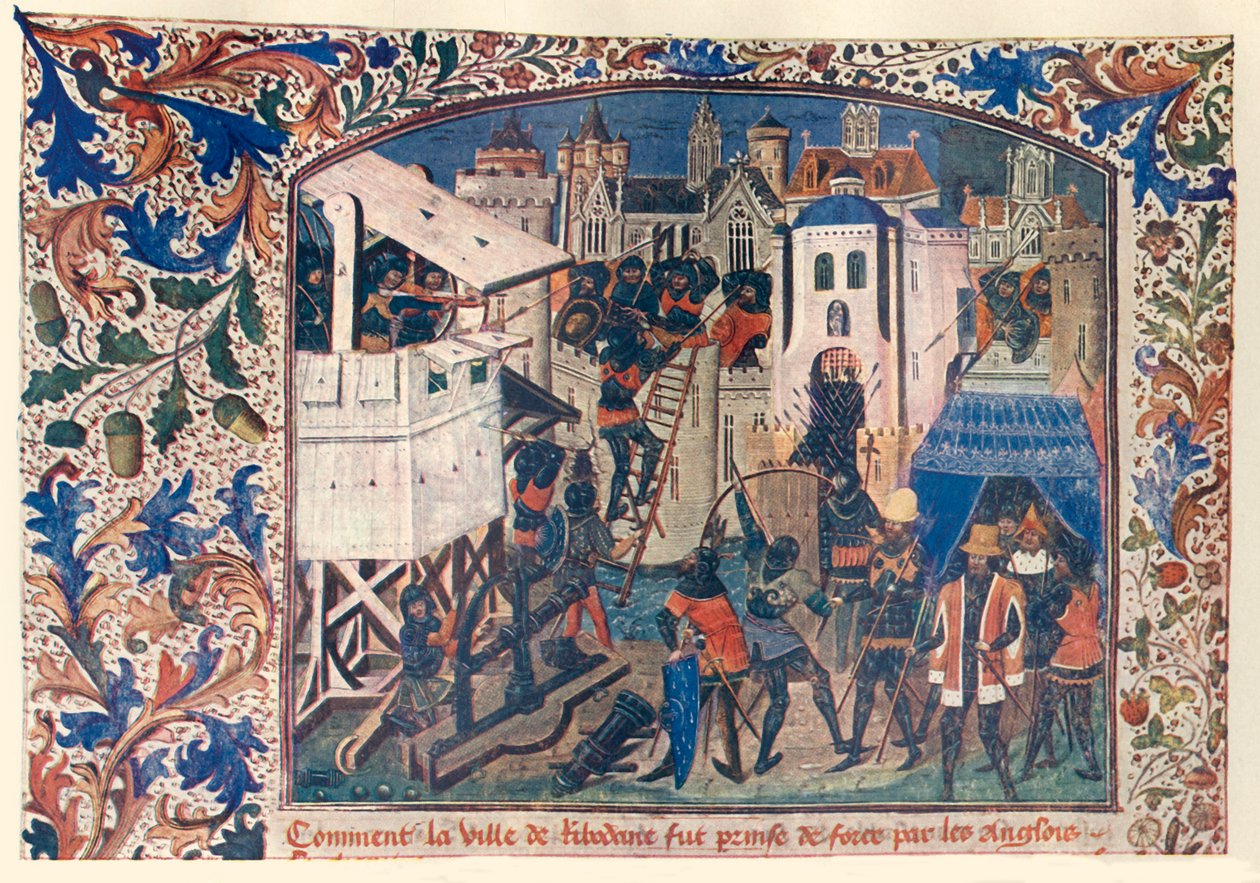 Comment la ville de Ribodane fut prinse de force par les Anglois